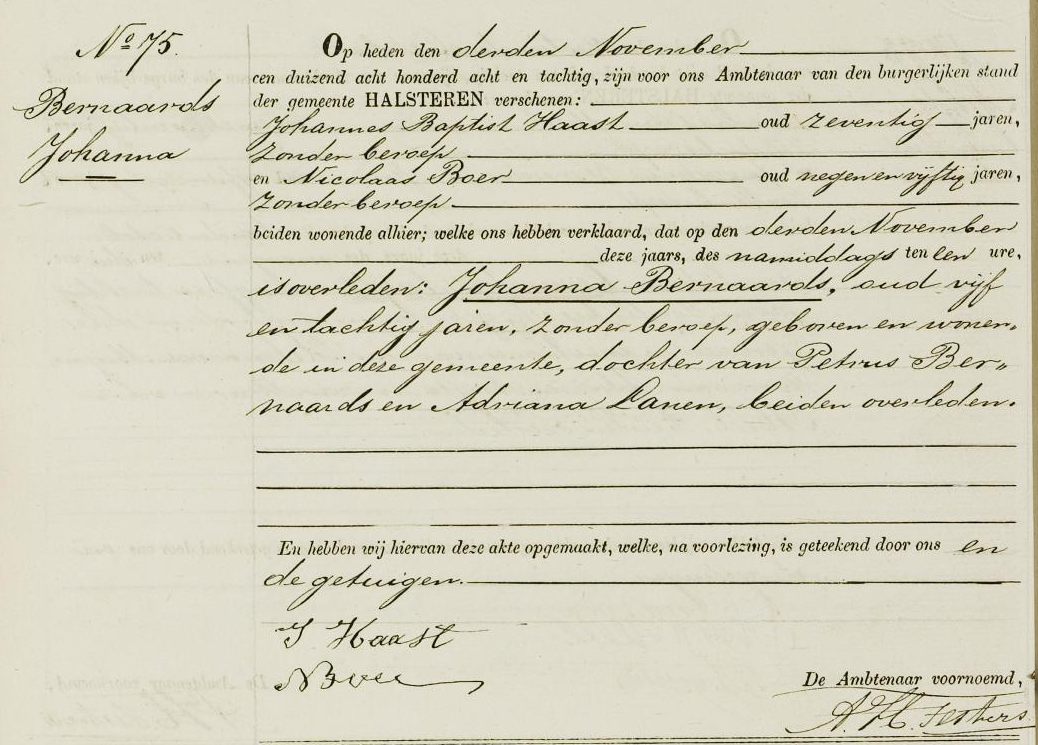 No 75.
Bernaards
Johanna
Op heden den derden November
een duizend acht honderd acht en tachtig, zijn voor ons Ambtenaar van den burgerlijken stand
der gemeente HALSTEREN verschenen:
Johannes Baptist Haast oud zeventig jaren,
zonder beroep
en Nicolaas Boer oud negen en vijftig jaren,
zonder beroep
beiden wonende alhier; welke ons hebben verklaard, dat op den derden November
deze jaars, des namiddags ten een ure,
is overleden: Johanna Bernaards, oud vijf
en tachtig jaren, zonder beroep, geboren en wonen„
de in deze gemeente, dochter van Petrus Ber„
naards en Adriana Lanen, beiden overleden.
En hebben wij hiervan deze akte opgemaakt, welke, na voorlezing, is geteekend door ons en
de getuigen.
J Haast
NBoer
De Ambtenaar voornoemd,
A. H.